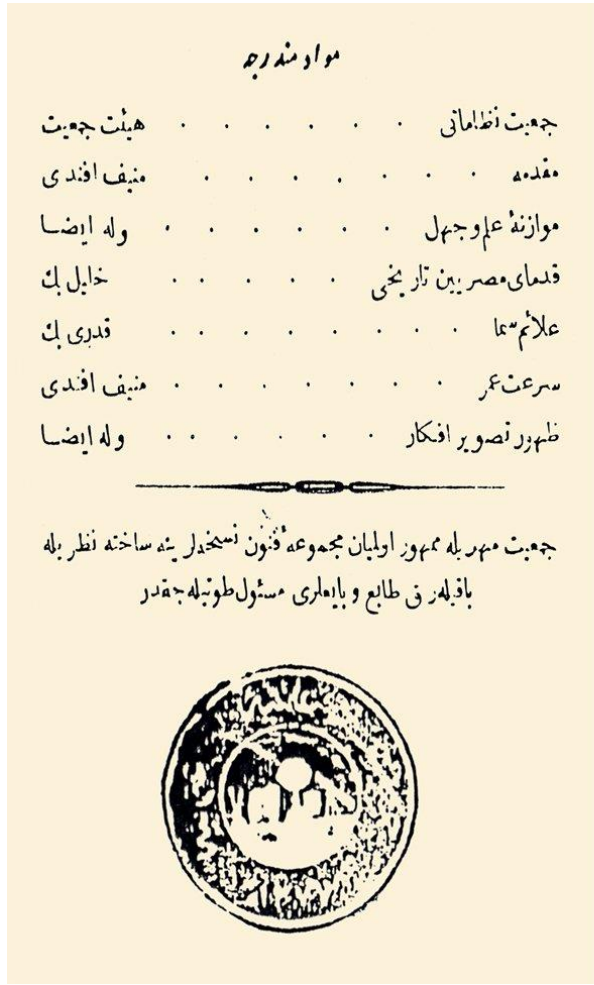 مواد مندرجه
جمعیت نظاماتی . . . . . . هیئت جمعیت
مقدمه . . . . . . . منیف افندی
موازنهٔ علم و جهل . . . . . . وله ایضا
قدمای مصریین تاریخی . . . . . خلیل بك
علائم سما . . . . . . . . قدری بك
سرعت عمر . . . . . . . منیف افندی
ظهور تصویر افکار . . . . . . وله ایضا
جمعیت مهریله ممهور اولمیان مجموعهٔ فنون نسخه‌لرینه ساخته نظریله
باقیله‌رق طابع و بایعلری مسئول طوتیله‌جقدر